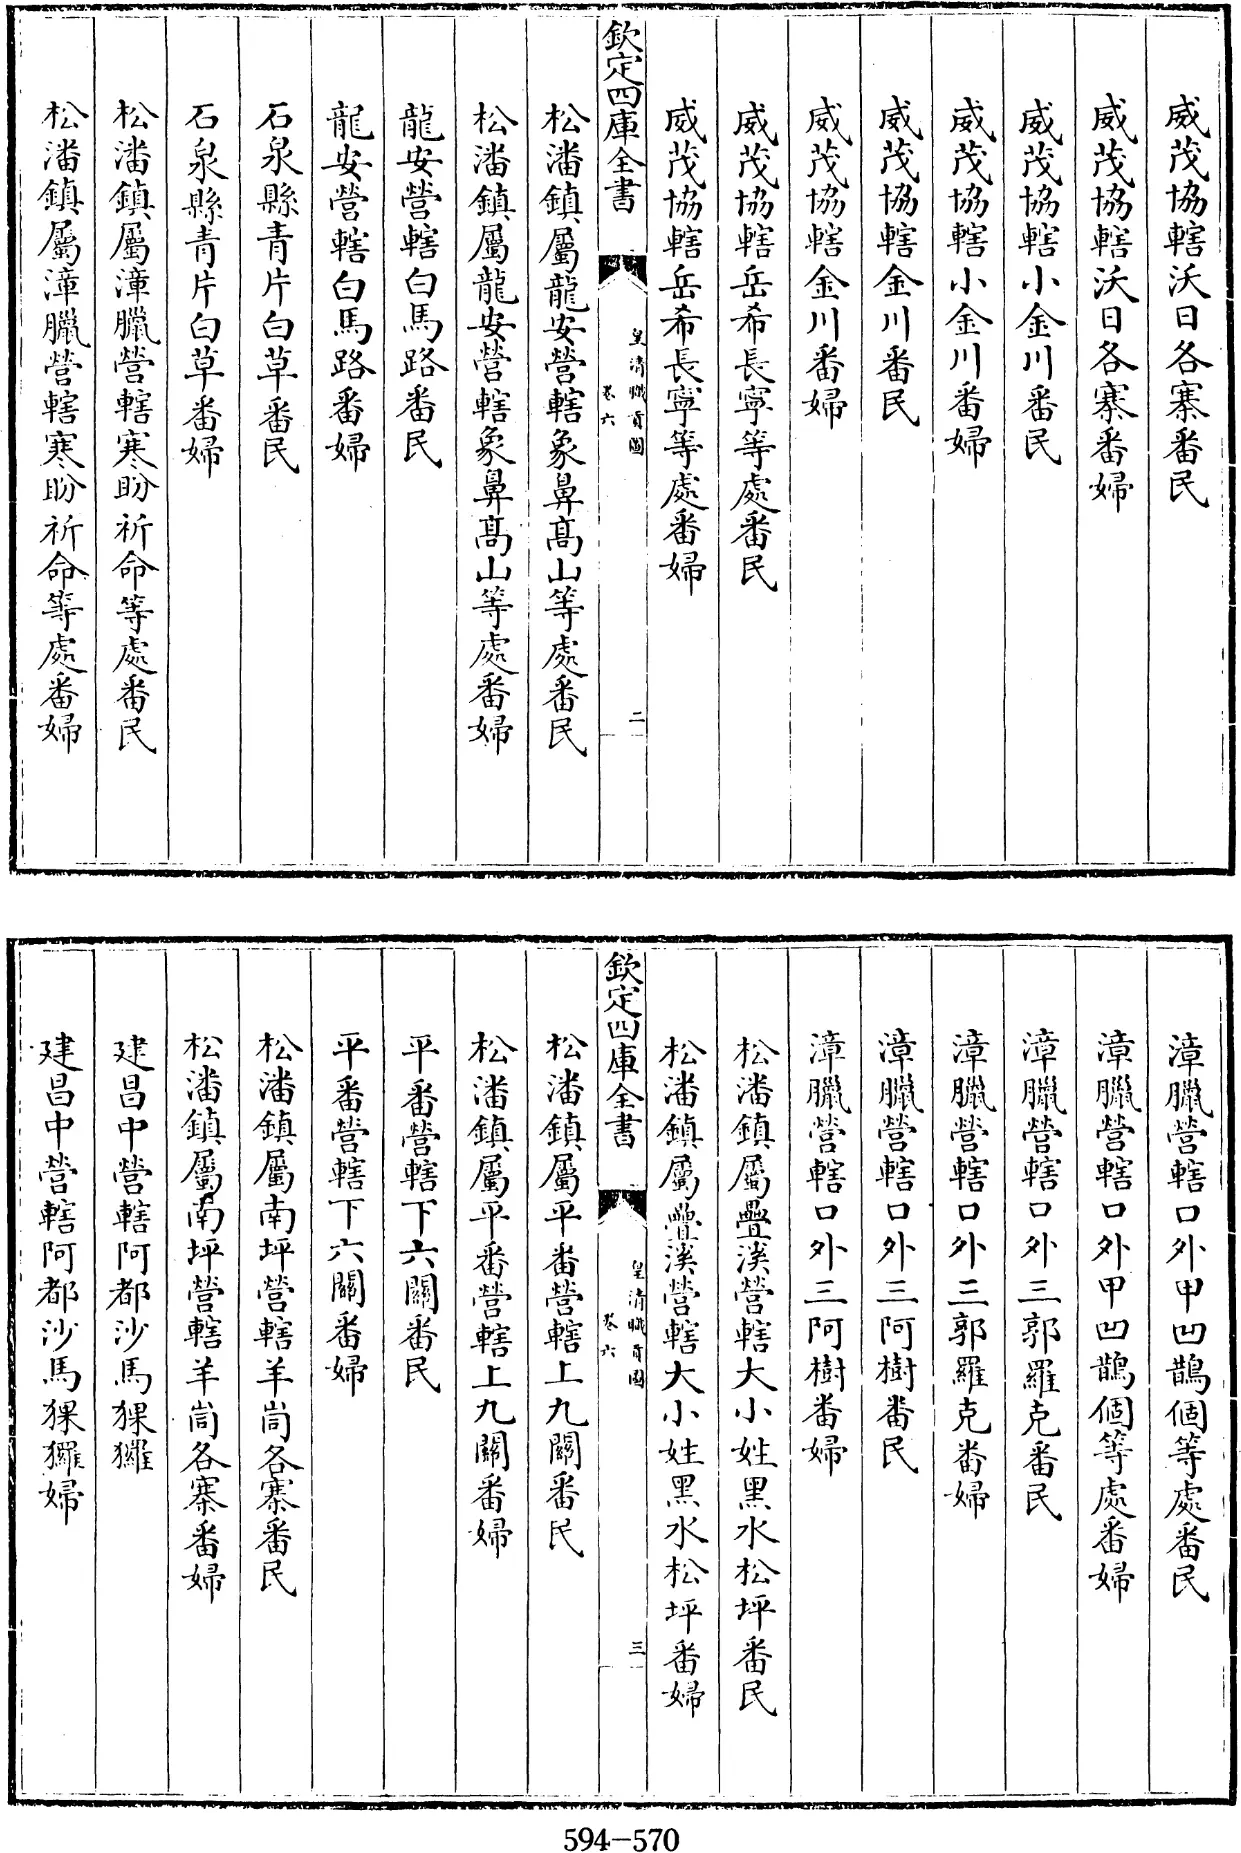 威茂協轄沃日各寨番民
威茂協轄沃日各寨番婦
威茂協轄小金川番民
威茂協轄小金川番婦
威茂協轄金川番民
威茂協轄金川番婦
威茂協轄岳希長寧等處番民
威茂協轄岳希長寧等處番婦
欽定四庫全書
皇清職貢圖
卷六
二
松潘鎮屬龍安營轄象鼻髙山等處番民
松潘鎮屬龍安營轄象鼻髙山等處番婦
龍安營轄白馬路番民
龍安營轄白馬路番婦
石泉縣青片白草番民
石泉縣青片白草番婦
松潘鎮屬漳臘營轄寒盼祈命等處番民
松潘鎮屬漳臘營轄寒盼祈命等處番婦
漳臘營轄口外甲凹鵲個等處番民
漳臘營轄口外甲凹鵲個等處番婦
漳臘營轄口外三郭羅克番民
漳臘營轄口外三郭羅克番婦
漳臘營轄口外三阿樹番民
漳臘營轄口外三阿樹番婦
松潘鎮屬疊溪營轄大小姓黑水松坪番民
松潘鎮屬疊溪營轄大小姓黑水松坪番婦
欽定四庫全書
皇清職貢圖
卷六
三
松潘鎮屬平番營轄上九關番民
松潘鎮屬平番營轄上九關番婦
平番營轄下六關番民
平番營轄下六關番婦
松潘鎮屬南坪營轄羊峝各寨番民
松潘鎮屬南坪營轄羊峝各寨番婦
建昌中營轄阿都沙馬猓玀
建昌中營轄阿都沙馬猓玀婦
594-570